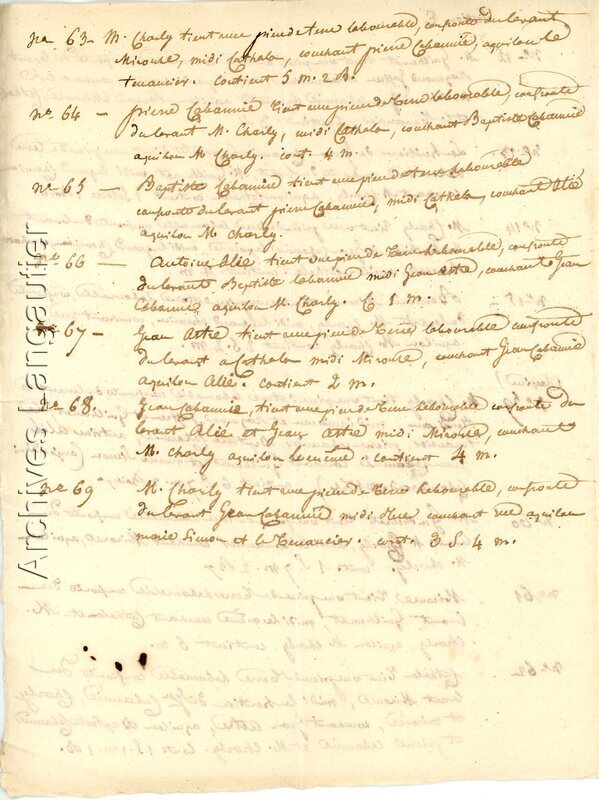 no 63 - M. Charly tient une piece de terre labourable, confronte du levant
Mirouse, midi Cathala, couchant pierre Cabannié, aquilon le
tenancier. contient 5 m. 2 B.
no 64 - pierre Cabannié tient une piece de terre labourable, confronte
du levant M. Charly, midi Cathala, couchant Baptiste Cabannié
aquilon M. Charly. cont. 4 m.
no 65 - Baptiste Cabannié tient une piece de terre labourable
confronte du levant pierre Cabannié, midi Cathala, couchant Alié,
aquilon M. Charly.
no 66 - Antoine Alié tient une piece de terre labourable, confronte
du levant Baptiste Cabannié midi Jean Astré, couchant Jean
Cabannié, aquilon M. Charly. C 1 m.
no 67 - Jean Astré tient une piece de terre labourable confronte
du levant a Cathala midi Mirouse, couchant Jean Cabannié
aquilon Alié. contient 2 m.
no 68. Jean Cabannié, tient une piece de terre labourable confronte du
levant Alié et Jean Astré midi Mirouse, couchant
M. Charly aquilon contient 4 m.
no 69 M. Charly tient une piece de terre labourable, confronte
du levant Jean Cabannié midi Rue couchant Rue aquilon
marie Simon et le Tenancier. cont. 3 S. 4 m.
Archives Langautier